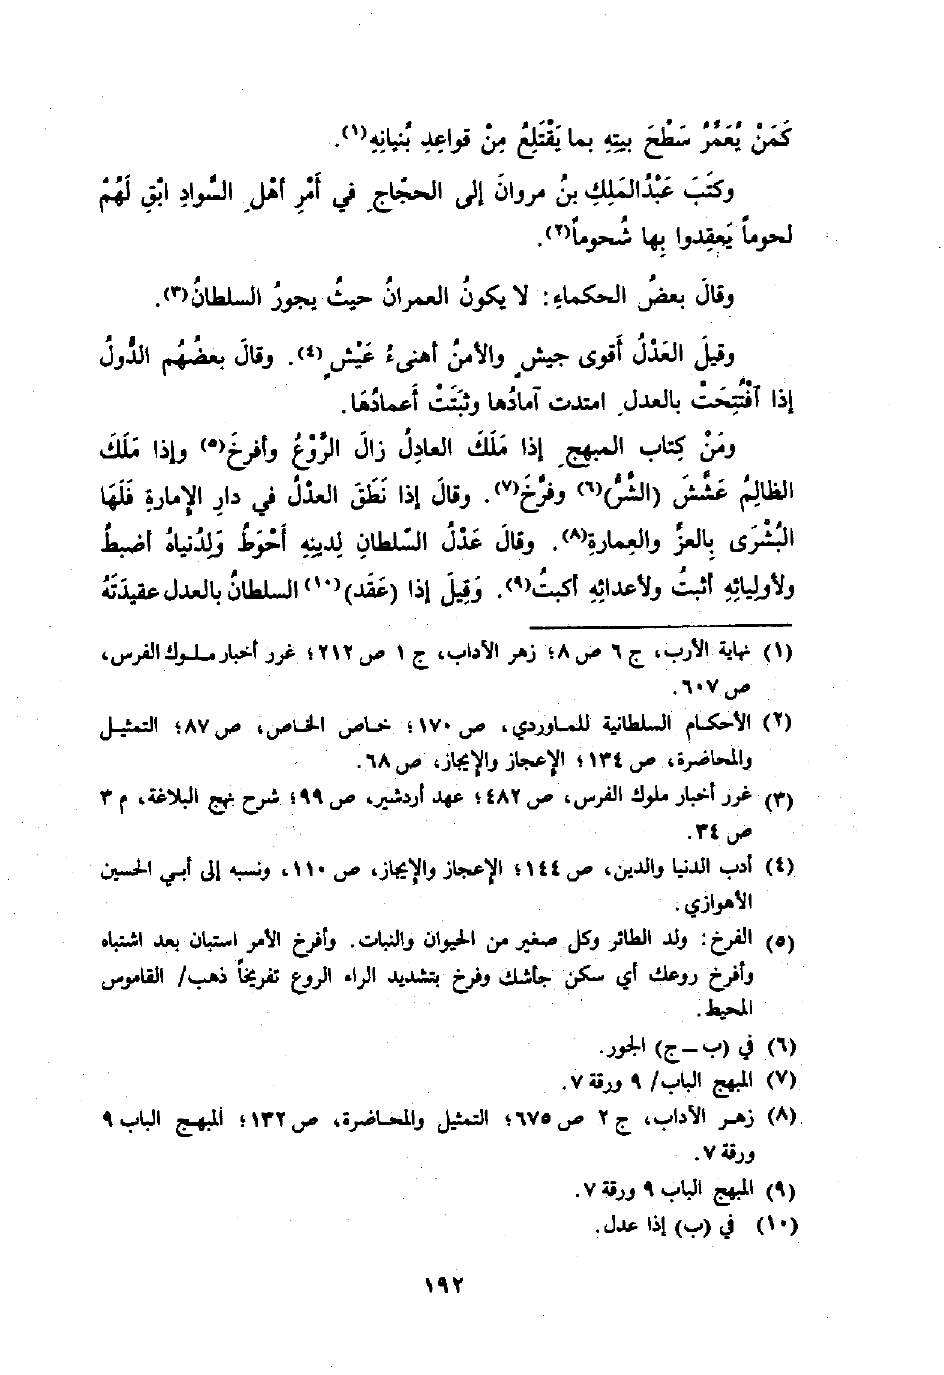 كَمَنْ يُعَمَّرُ سَطْحَ بيتِهِ بما يَقْتَلِعُ مِنْ قواعِدِ بُنيانِهِ(١).
وكتَبَ عَبْدُالمَلِكِ بنُ مروانَ إلى الحجّاجِ في أَمْرِ أهْلِ السَّوادِ ابْقِ لَهُمْ
لحوماً يَعقِدوا بِها شُحوماً(٢).
وقالَ بعضُ الحكماءِ: لا يكونُ العمرانُ حيثُ يجورُ السلطانُ(٣).
وقيلَ العَدْلُ أَقوى جيشٍ والأمنُ أهنىءُ عَيْشٍ(٤). وقالَ بعضُهُم الدُّولُ
إذا آفْتُتِحَتْ بالعدلِ امتدت آمادُها وثبَتَتْ أَعمادُهَا.
ومَنْ كِتاب المبهجِ إذا مَلَكَ العادِلُ زالَ الرَّوْعُ وأفرخَ(٥) وإذا مَلَكَ
الظالِمُ عَشَّشَ (الشَّرُّ)(٦) وفرَّخَ(٧). وقالَ إذا نَطَقَ العدْلُ في دارِ الإمارةِ فَلَهَا
البُشْرَى بِالعزِّ والعِمارةِ(٨). وقالَ عَدْلُ السّلطانِ لِدينِهِ أَحْوَطُ وَلِدُنياهُ أضبطُ
ولأولِيائِهِ أثبتُ ولأعدائِهِ أكبتُ(٩). وَقِيلَ إذا (عَقَد)(١٠) السلطانُ بالعدل عقيدَتَهُ
(١) نهاية الأرب، ج ٦ ص ٨؛ زهر الآداب، ج ١ ص ٢١٢؛ غرر أخبار ملوك الفرس،
ص ٦٠٧.
(٢) الأحكام السلطانية للماوردي، ص ١٧٠؛ خاص الخاص، ص ٨٧؛ التمثيل
والمحاضرة، ص ١٣٤؛ الإعجاز والإيجاز، ص ٦٨.
(٣) غرر أخبار ملوك الفرس، ص ٤٨٢؛ عهد أردشير، ص ٩٩؛ شرح نهج البلاغة، م ٣
ص ٣٤.
(٤) أدب الدنيا والدين، ص ١٤٤؛ الإعجاز والإيجاز، ص ١١٠، ونسبه إلى أبي الحسين
الأهوازي.
(٥) الفرخ: ولد الطائر وكل صغير من الحيوان والنبات. وأفرخ الأمر استبان بعد اشتباه
وأفرخ روعك أي سكن جأشك وفرخ بتشديد الراء الروع تفريخاً ذهب/ القاموس
المحيط.
(٦) في (ب – ج) الجور.
(٧) المبهج الباب/ ٩ ورقة ٧.
(٨) زهر الآداب، ج ٢ ص ٦٧٥؛ التمثيل والمحاضرة، ص ١٣٢؛ المبهج الباب ٩
ورقة ٧.
(٩) المبهج الباب ٩ ورقة ٧.
(١٠) في (ب) إذا عدل.
١٩٢